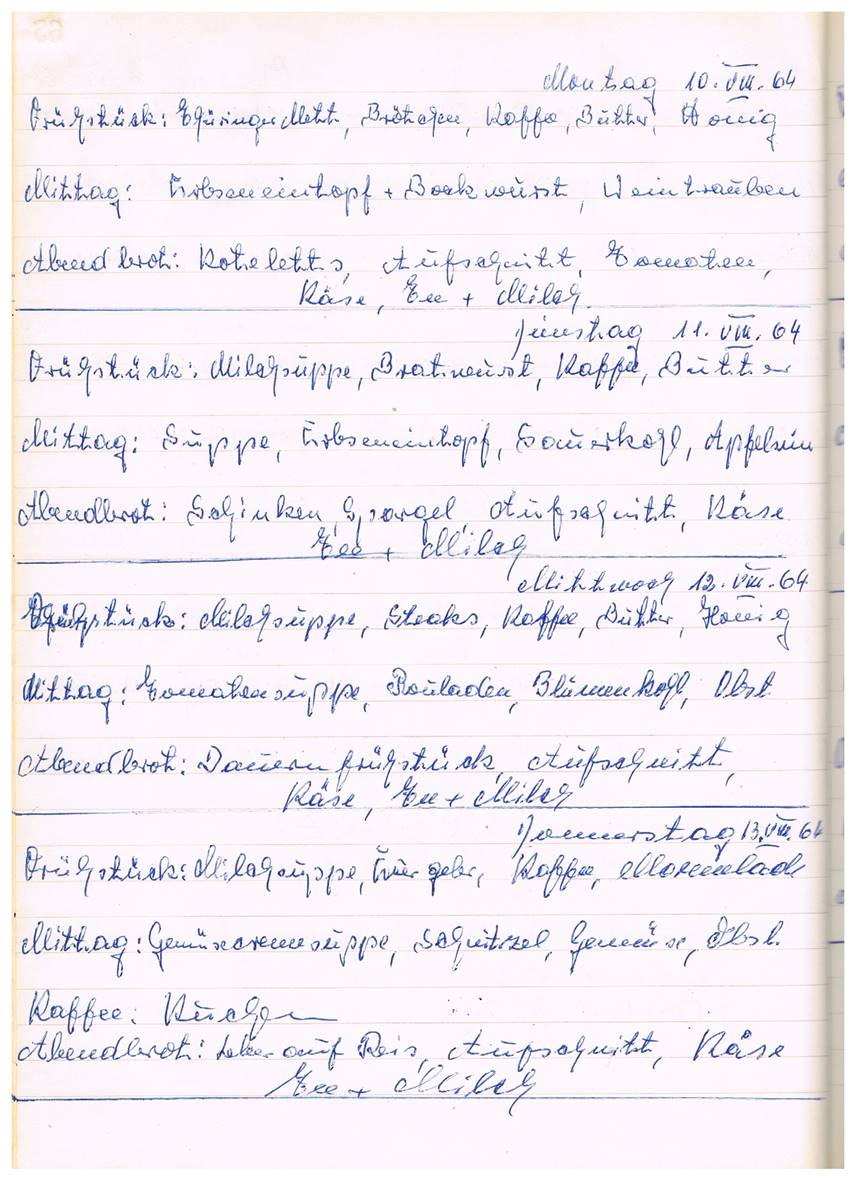 Montag 10. VIII. 64
Frühstück: Thüringer Mett, Brötchen, Kaffe, Butter, Honig
Mittag: Erbseneintopf + Bockwurst, Weintrauben
Abendbrot: Koteletts, Aufschnitt, Tomaten,
Käse, Tee + Milch.
Dienstag 11. VIII. 64
Frühstück: Milchsuppe, Bratwurst, Kaffee, Butter
Mittag: Suppe, Erbseneintopf, Sauerkohl, Apfelsin
Abendbrot: Schinken, Spargel Aufschnitt, Käse
Tee + Milch
Mittwoch 12. VIII. 64
Frühstück: Milchsuppe, Steaks, Kaffee, Butter, Honig
Mittag: Tomatensuppe, Rouladen, Blumenkohl, Obst
Abendbrot: Bauernfrühstück, Aufschnitt,
Käse, Tee + Milch
Donnerstag 13. VIII. 64
Frühstück: Milchsuppe, Eier gebr, Kaffee, Marmelade
Mittag: Gemüsecremesuppe, Schnitzel, Gemüse, Obst.
Kaffee: Kuchen
Abendbrot: Leber auf Reis, Aufschnitt, Käse
Tee + Milch